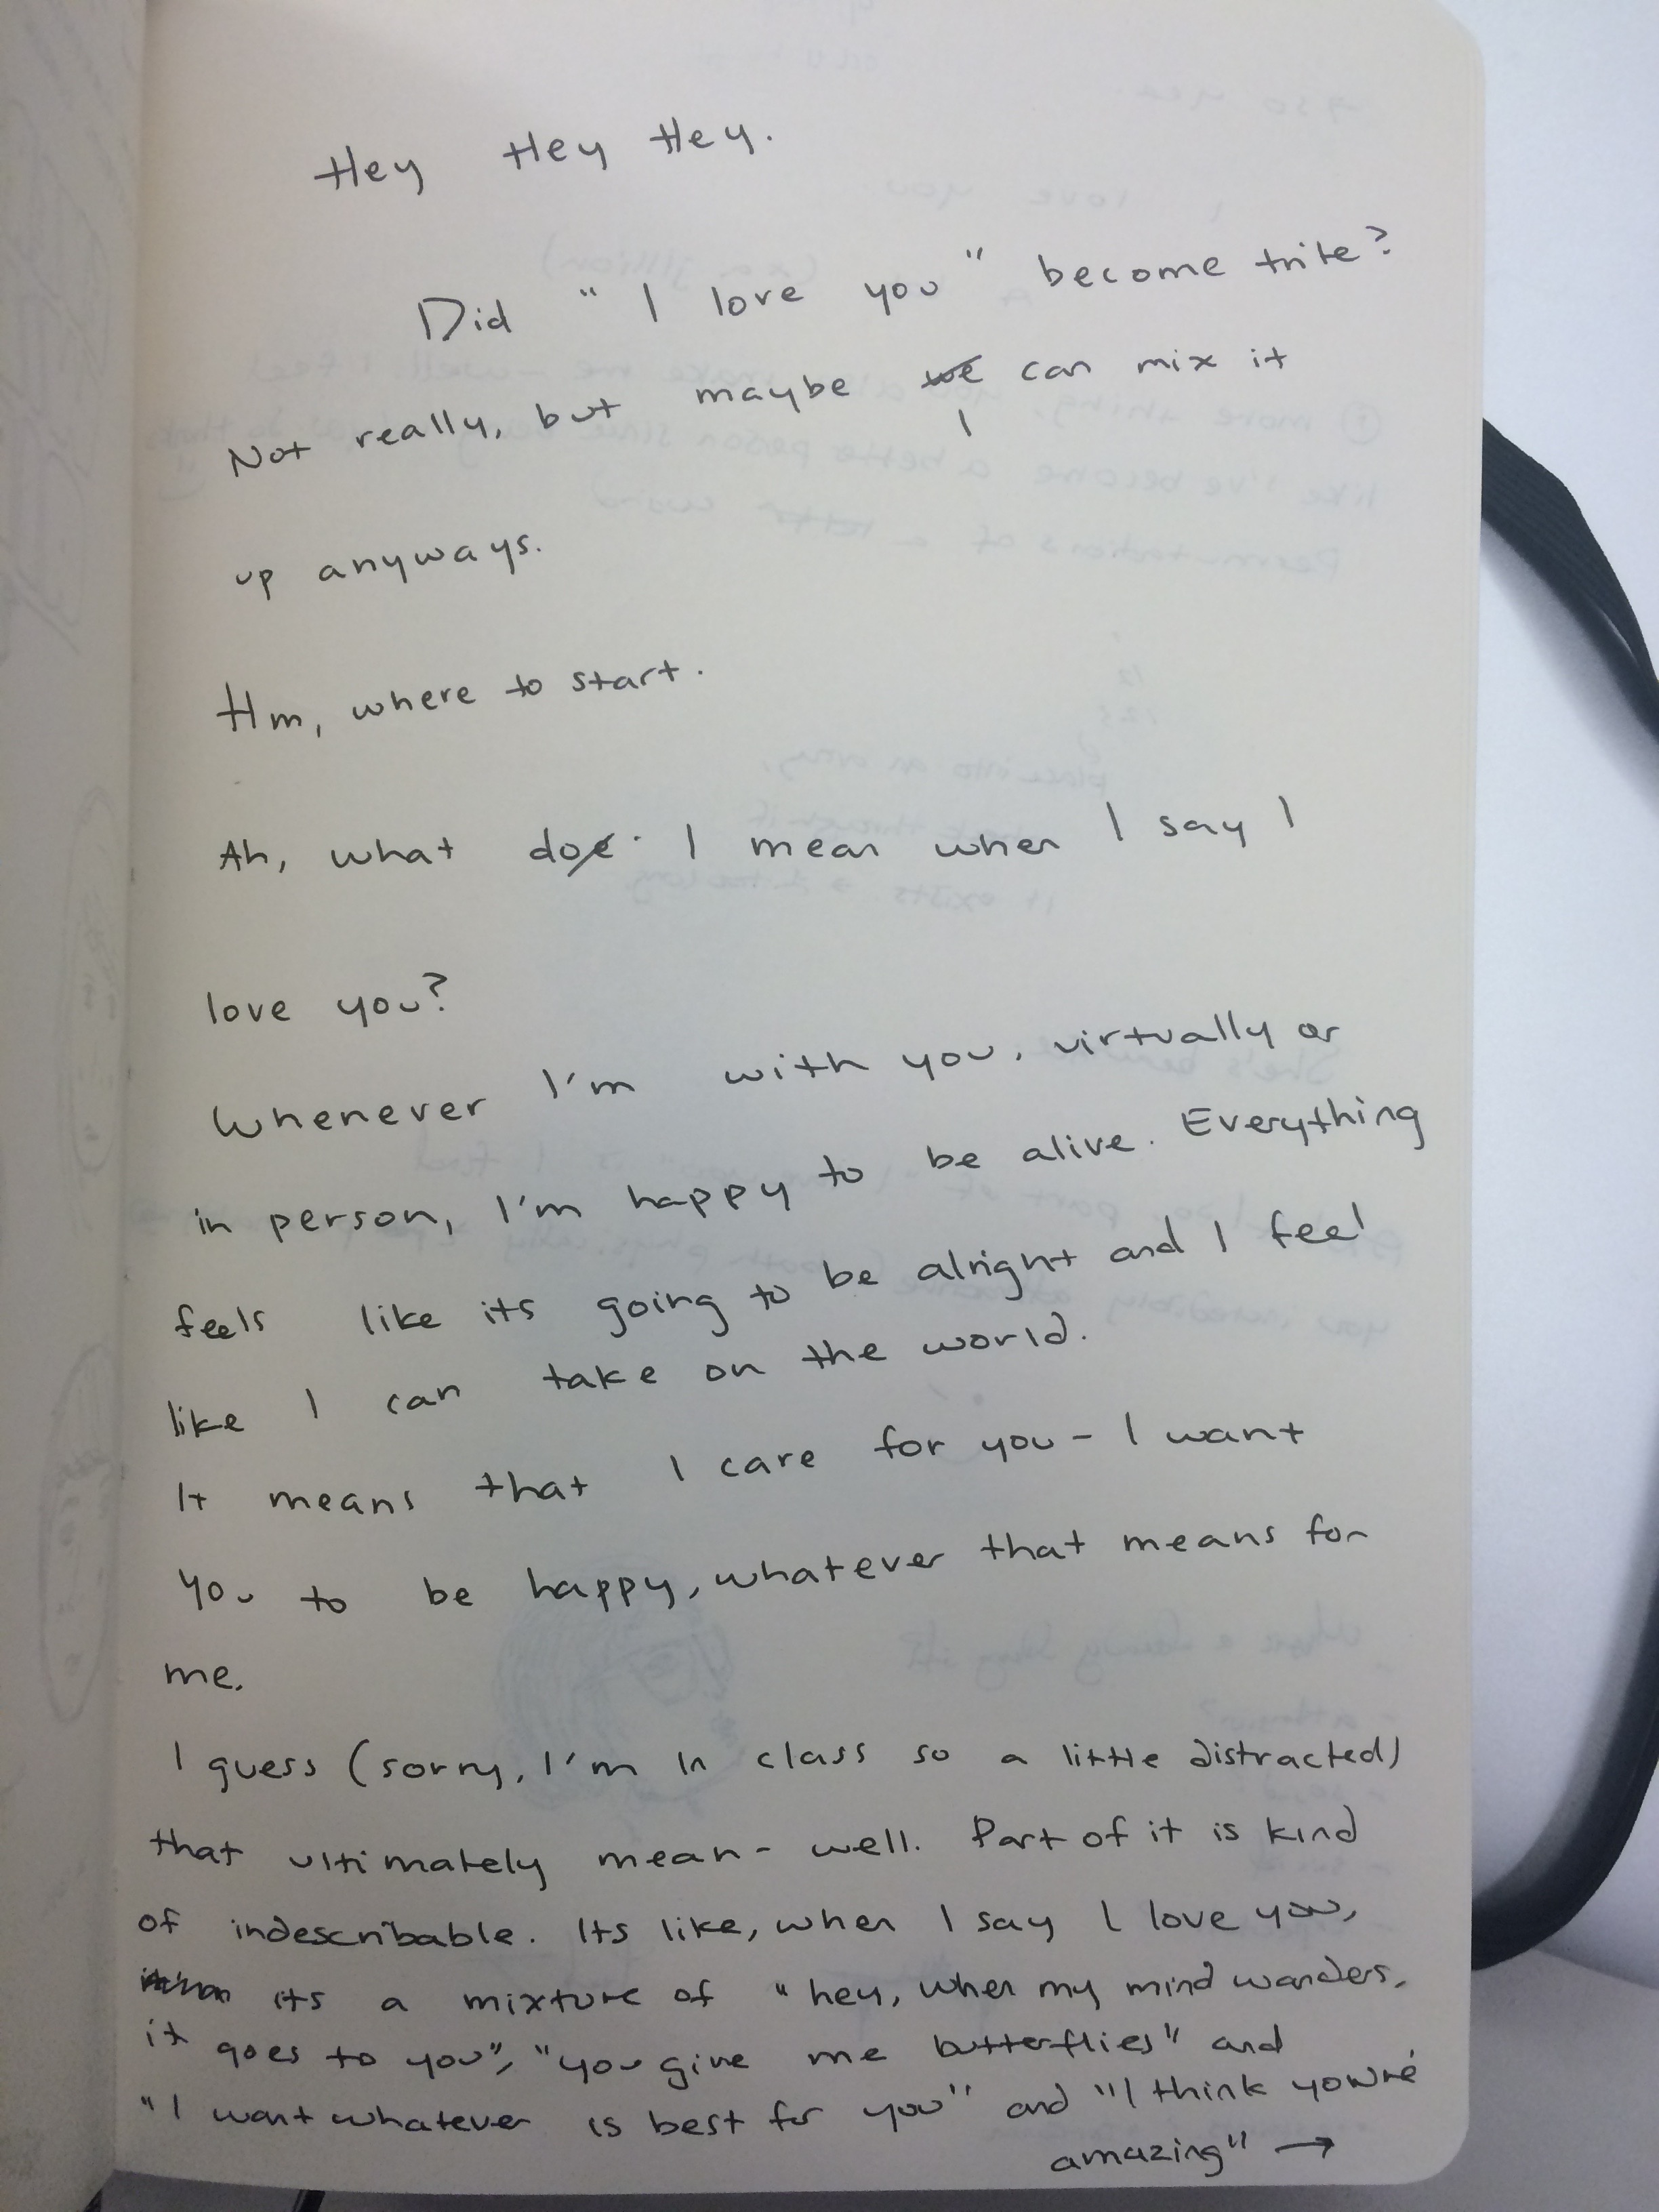 Hey Hey Hey.
Did "I love you" become trite?
Not really, but maybe I can mix it
up anyways.
Hm, where to start.
Ah, what do I mean when I say I
love you?
Whenever I'm with you, virtually or
in person, I'm happy to be alive. Everything
feels like its going to be alright and I feel
like I can take on the world.
It means that I care for you - I want
you to be happy, whatever that means for
me.
I guess (sorry, I'm in class so a little distracted)
that ultimately mean- well. Part of it is kind
of indescribable. Its like, when I say I love you,
its a mixture of "hey, when my mind wanders,
it goes to you", "you give me butterflies" and
"I want whatever is best for you" and "I think you're
amazing" →